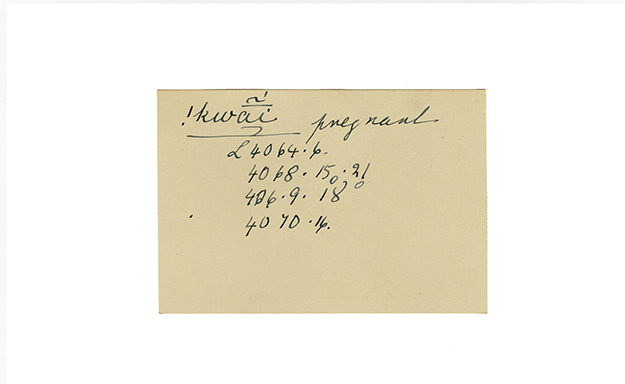 !kwā̃í pregnant
L 4064.6.
4068.15.21
4069.18
4070.16.